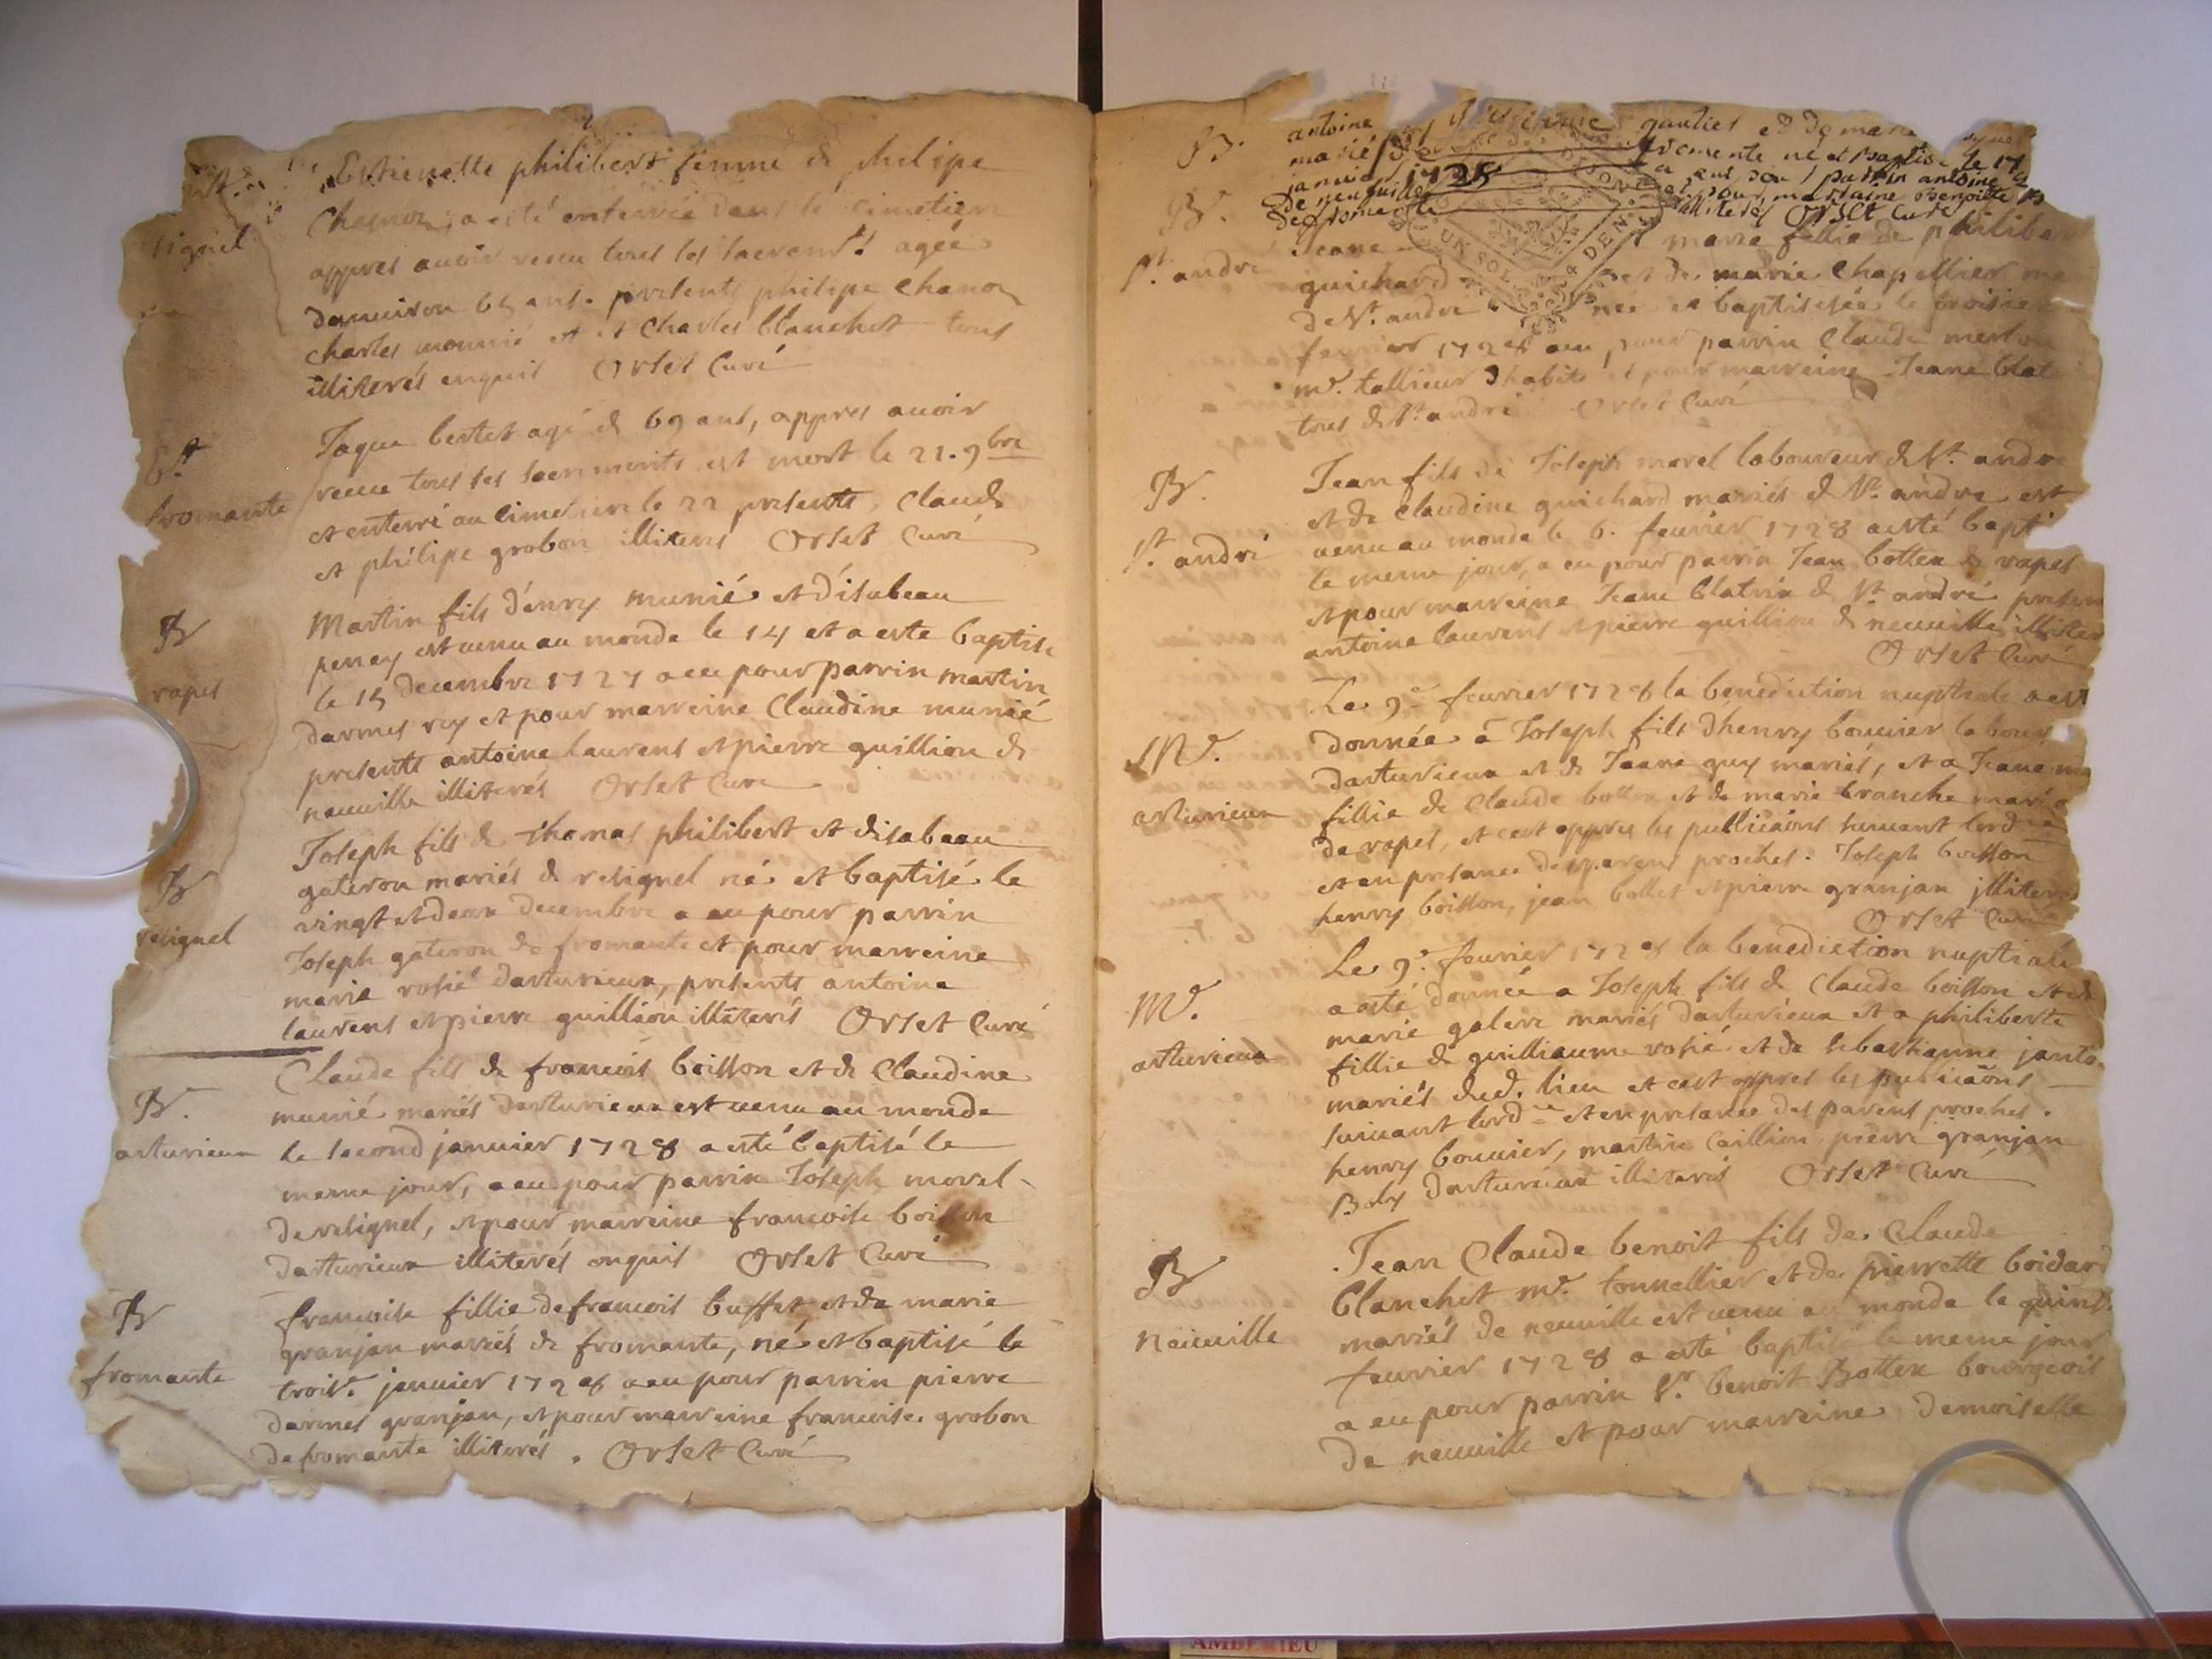 Estienette philibert femme de philipe
Chanoz, a esté enterrée dans le cimetiere
signel
appres avoir receu tous les sacremts. agée
d'anuiron 65 ans. presents philipe Chanoz
charles mounié et et Charles blanchet tous
illiterés enquis Orset Curé
Jaque bertet agé de 69 ans, appres auoir
Ett
receu tous ses sacrements est mort le 21. 9bre
fromante
et enterré au cimetiere le 22 presents, Claude
et philipe grobon illiterés Orset Curé
B
Martin fils d'enry munié et d'isabeau
perney est venu au monde le 14 et a este baptisé
rapes
le 15 decembre 1727 a eu pour parrin martin
darmes rey et pour marreine Claudine munié
presents antoine laurens et pierre guillion de
neuuille illiterés Orset Curé
Joseph fils de thomas philibert et disabeau
B
gateron mariés de resignel né et baptisé le
resignel
vingt et deux decembre a eu pour parrin
Joseph gateron de fromante et pour marreine
marie rosié darturieux, presents antoine
laurens et pierre guillion illiterés Orset Curé
Claude fils de francois boisson et de Claudine
B.
munié mariés darturieux est venu au monde
arturieux
le second januier 1728 a esté baptisé le
meme jour, a eu pour parrin Joseph morel
de resignel, et pour marreine francoise boisson
darturieux illiterés enquis Orset Curé
B
francoise fillie de francois buffet et de marie
granjan mariés de fromante, né et baptisé le
fromante
trois.e januier 1728 a eu pour parrin pierre
darmes granjan, et pour marreine francoise grobon
de fromante illiterés. Orset Curé
B. antoine gautier et de marie
mariés de fromente né et baptisé le 17
januier 1728 a eut pour parrin antoine
de neuuille et pour marraine Benoitte
B.
de fromente illiterés Orset Curé
Jeane marie fillie de philiber
St. andré
guichard et de marie Chapellier
de St. andre née et baptisée le troisie
feurier 1728 a eu pour parrin Claude
me. tallieur d'habits et pour marreine Jeane blat
tous de St. andre Orset Curé
B.
Jean fils de Joseph morel laboureur de St. andre
et de Claudine guichard mariés de St. andre est
St. andré
uenu au monde le 6. feurier 1728 a esté bapt
le meme jour, a eu pour parrin Jean bottex de rapes
et pour marreine Jeane blatrin de St. andré presen
antoine laurens et pierre guillion de neuuille illiter
Orset Curé
Le 9e feurier 1728 la benediction nuptiale a est
Me.
donnée a Joseph fils dhenry bouuier labour
darturieux et de Jeane guy mariés, et a Jeane
arturieux
fillie de Claude bottex et de marie branche marié
de rapes, et c'est appres les publicãons suiuant lord.ce
et en presance des parens proches. Joseph boisson
henry boisson, jean bollet et pierre granjan illiteres
Orset Curé
Le 9e. feurier 1728 la benediction nuptiale
Me.
a esté donnée a Joseph fils de Claude boisson et de
marie galere mariés darturieux et a philiberte
arturieux
fillie de guilliaume rosié et de sebastianne janto
mariés dud. lieu et cest appres les publicãons
suiuant lord.ce et en presance des parens proches.
henry bouuier, martin Caillion pierre granjan
Boly darturieux illiterés Orset Curé
Jean Claude benoit fils de Claude
B
blanchet me. tonnellier et de pierrette boidard
neuuille
mariés de neuuille est uenu au monde le quinz.
feurier 1728 a esté baptisé le meme jour
a eu pour parrin Sr. benoit Bottex bourgeois
de neuuille et pour marreine Demoiselle
AMBERIEU